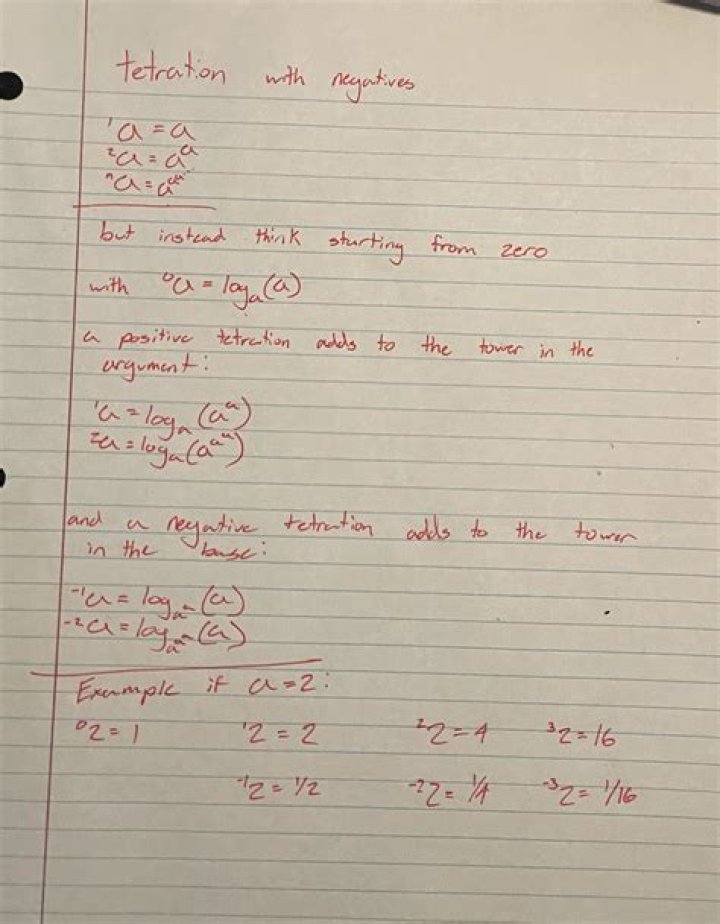 tetration with negatives
¹a = a
²a = aᵃ
ⁿa = a^a^a^..
but instead think starting from zero
with ⁰a = logₐ(a)
a positive tetration adds to the tower in the
argument:
¹a = logₐ(a^a)
²a = logₐ(a^a^a)
and a negative tetration adds to the tower
in the base:
⁻¹a = log_a^a(a)
⁻²a = log_a^a^a(a)
Example if a = 2:
⁰2 = 1 ¹2 = 2 ²2 = 4 ³2 = 16
⁻¹2 = 1/2 ⁻²2 = 1/4 ⁻³2 = 1/16